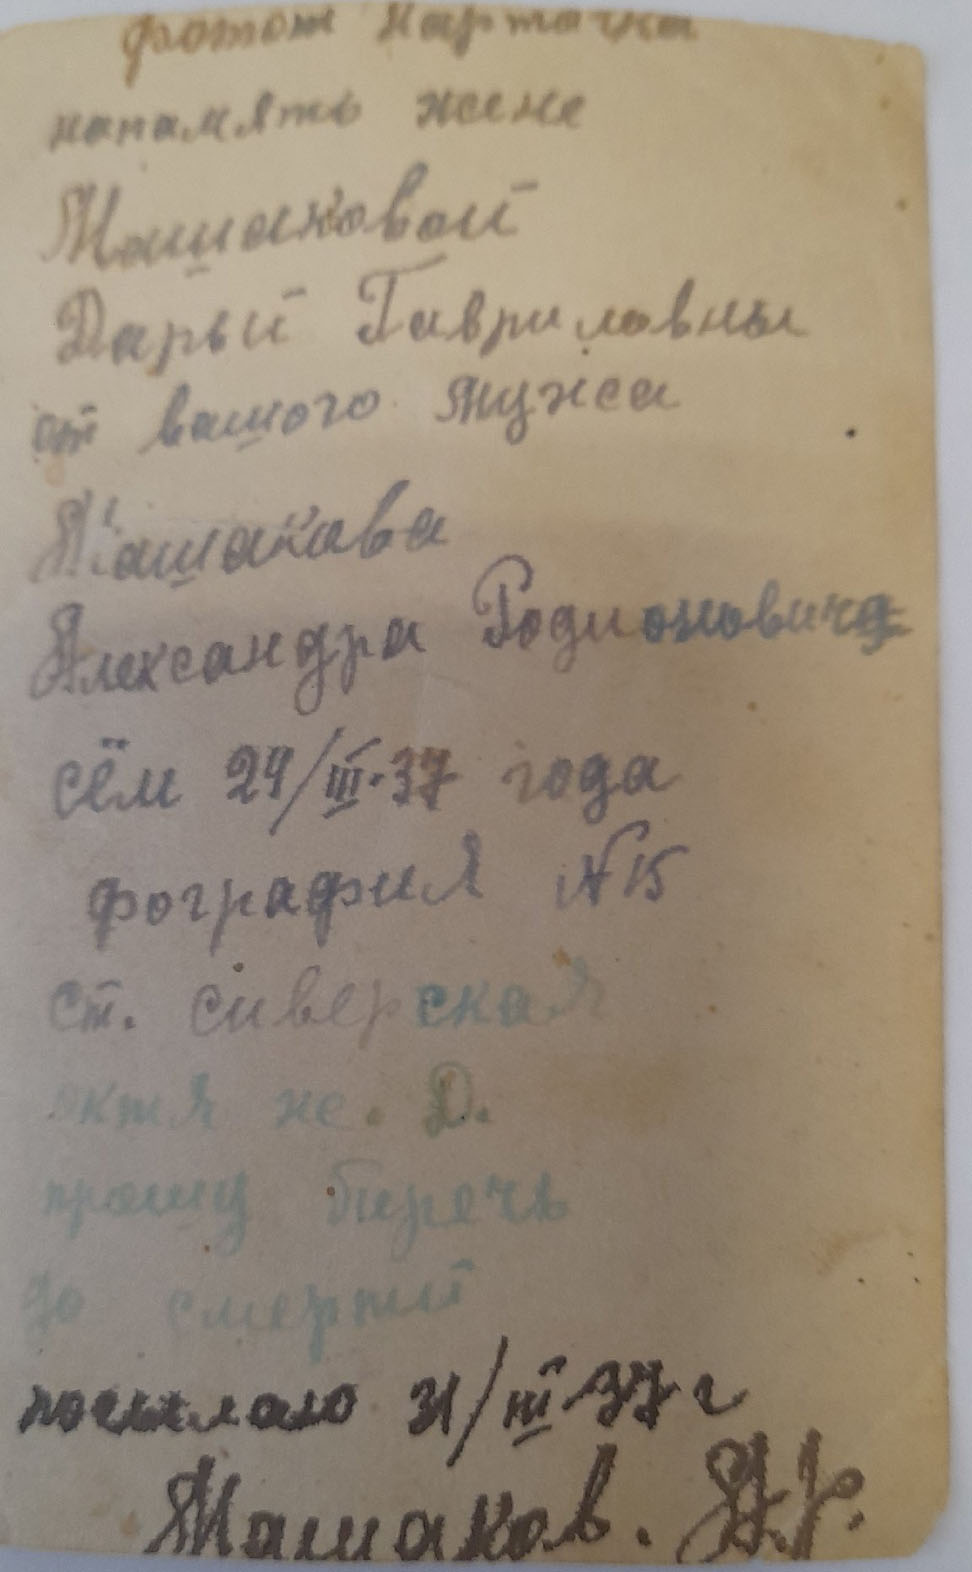 фотои карточка
напамять жене
Машаковой
Дарьй Гавриловны
от вашого мужса
Машакова
Александра Родионовича
сём 24/III-37 года
фография №15
ст. сиверская
не. Д.
прошу биречь
до смертй
посылаю 31/III-37 г
Машаков. А.Р.